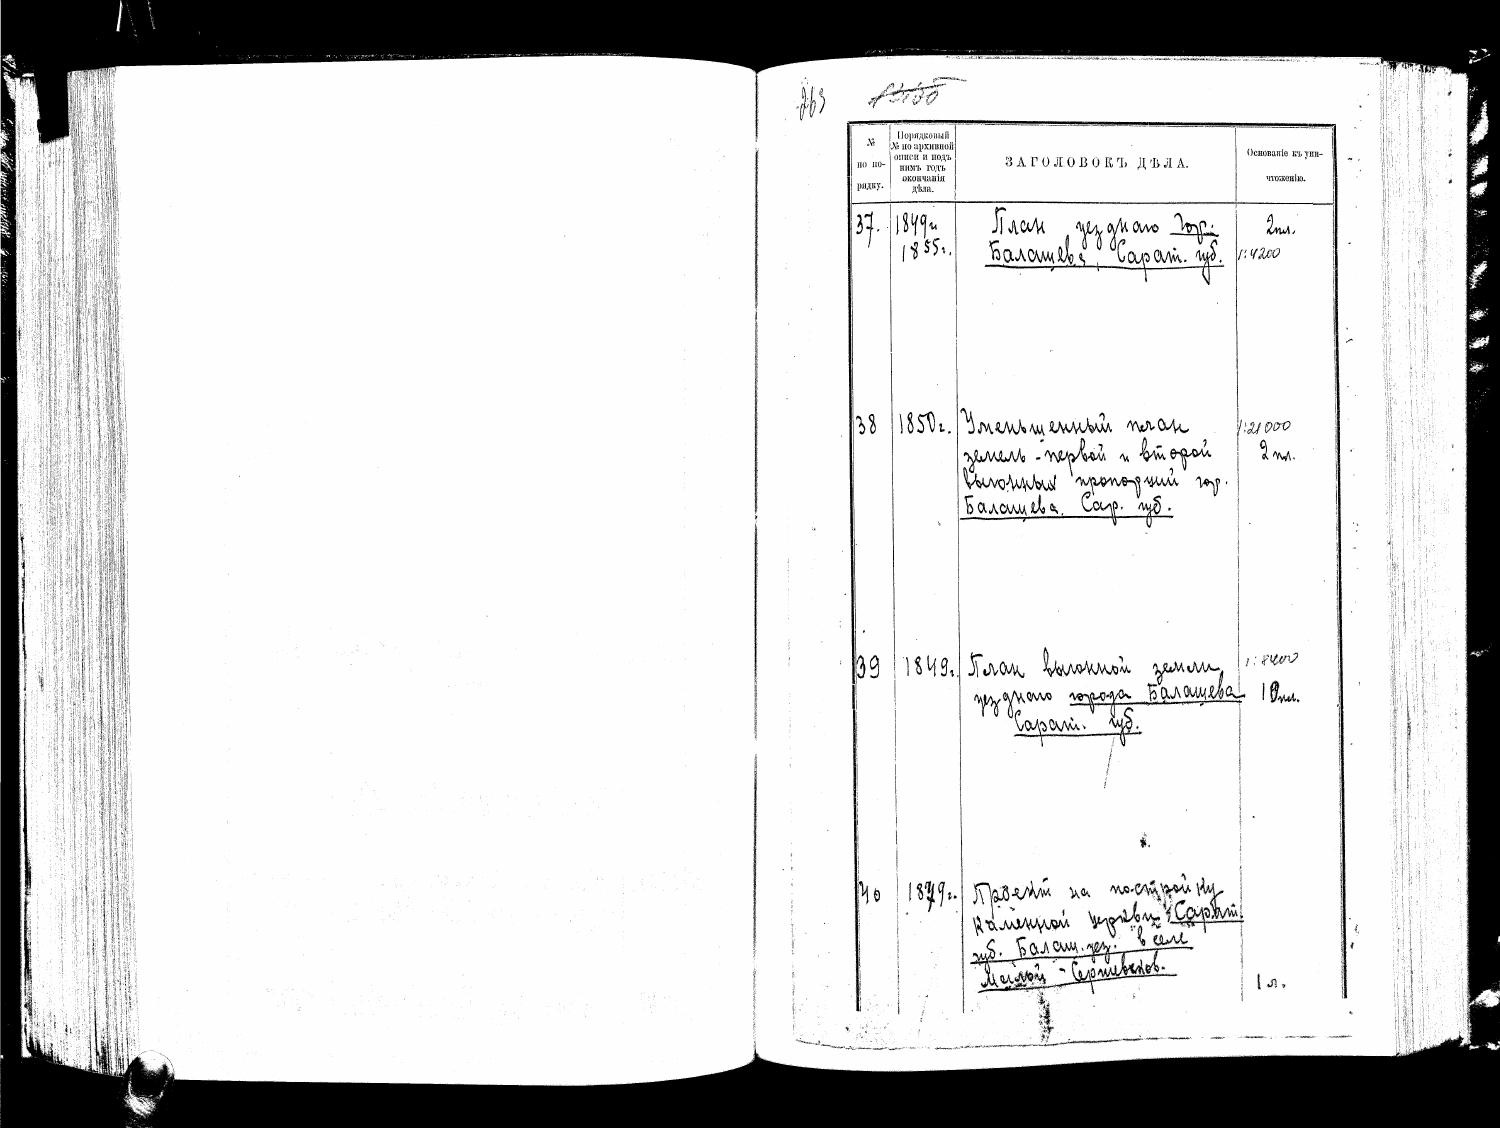 263
№
по по-
рядку.
Порядковый
№ по архивной
описи и подъ
нимъ годъ
окончанія
дѣла.
ЗАГОЛОВОКЪ ДѢЛА.
Основаніе къ уни-
чтоженію.
37. 1849 и План уездного гор. 2 пл.
1855 г. Балашева, Сарат. губ. 1:4200
38 1850 г. Уменьшенный план 1:21000
земель - первой и второй 2 пл.
выгонных пропорций гор.
Балашева. Сар. губ.
39 1849 г. План выгонной земли 1:8400
уездного города Балашева 1 пл.
Сарат. губ.
40 1849 г. Проект на постройку
каменной церкви Сарат.
губ. Балаш. уез. в селе
Малой - 1 л.